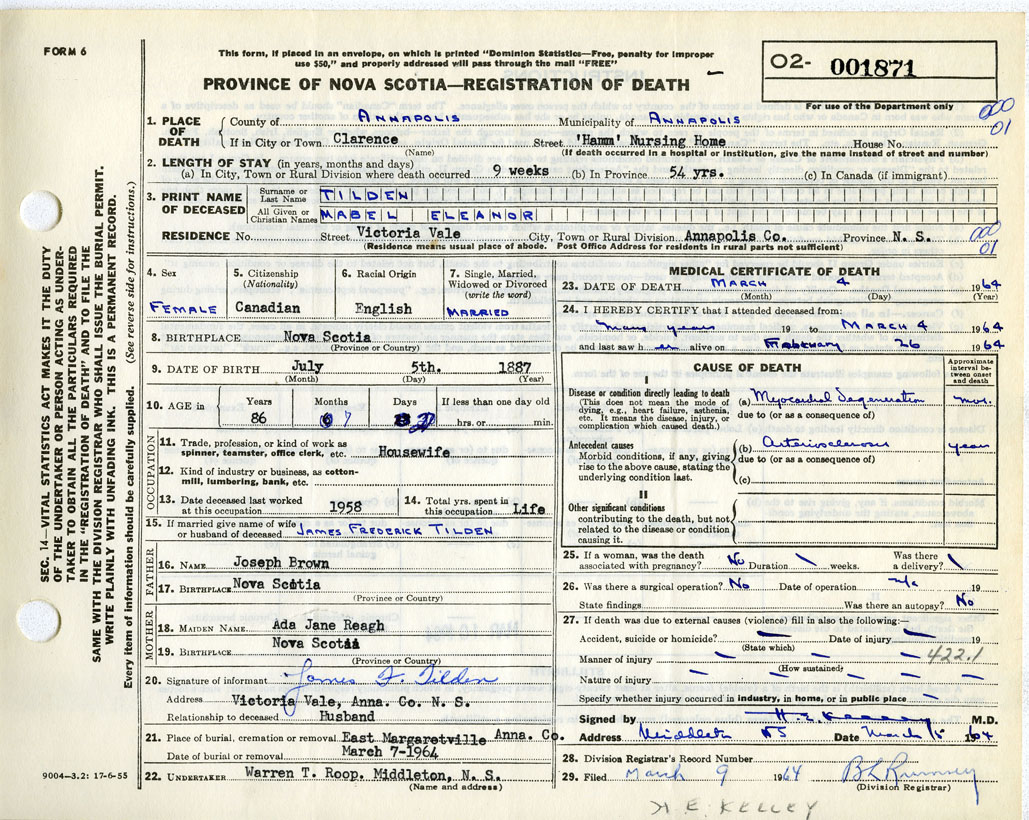 FORM 6
This form, if placed in an envelope, on which is printed "Dominion Statistics—Free, penalty for improper
use $50," and properly addressed will pass through the mail "FREE"
PROVINCE OF NOVA SCOTIA—REGISTRATION OF DEATH
O2- 001871
For use of the Department only
000
01
SEC. 14—VITAL STATISTICS ACT MAKES IT THE DUTY
OF THE UNDERTAKER OR PERSON ACTING AS UNDER-
TAKER TO OBTAIN ALL THE PARTICULARS REQUIRED
IN THE "REGISTRATION OF DEATH" AND TO FILE THE
SAME WITH THE DIVISION REGISTRAR WHO SHALL ISSUE THE BURIAL PERMIT.
WRITE PLAINLY WITH UNFADING INK. THIS IS A PERMANENT RECORD.
Every item of information should be carefully supplied. (See reverse side for instructions.)
1. PLACE OF DEATH
County of ANNAPOLIS Municipality of ANNAPOLIS
If in City or Town Clarence Street 'Hamm' Nursing Home House No.
(Name) (If death occurred in a hospital or institution, give the name instead of street and number)
2. LENGTH OF STAY (in years, months and days)
(a) In City, Town or Rural Division where death occurred 9 weeks (b) In Province 54 yrs. (c) In Canada (if immigrant)
3. PRINT NAME OF DECEASED
Surname or Last Name TILDEN
All Given or Christian Names MABEL ELEANOR
RESIDENCE No. Street Victoria Vale City, Town or Rural Division Annapolis Co. Province N. S.
(Residence means usual place of abode. Post Office Address for residents in rural parts not sufficient)
000
01
4. Sex FEMALE
5. Citizenship (Nationality) Canadian
6. Racial Origin English
7. Single, Married, Widowed or Divorced (write the word) MARRIED
8. BIRTHPLACE Nova Scotia
(Province or Country)
9. DATE OF BIRTH July 5th. 1887
(Month) (Day) (Year)
10. AGE in Years Months Days If less than one day old
86 7 hrs. or min.
OCCUPATION
11. Trade, profession, or kind of work as
spinner, teamster, office clerk, etc. Housewife
12. Kind of industry or business, as cotton-
mill, lumbering, bank, etc.
13. Date deceased last worked
at this occupation 1958
14. Total yrs. spent in
this occupation Life
15. If married give name of wife
or husband of deceased JAMES FREDERICK TILDEN
FATHER
16. NAME Joseph Brown
17. BIRTHPLACE Nova Scotia
(Province or Country)
MOTHER
18. MAIDEN NAME Ada Jane Reagh
19. BIRTHPLACE Nova Scotia
(Province or Country)
20. Signature of informant James F. Tilden
Address Victoria Vale, Anna. Co. N. S.
Relationship to deceased Husband
21. Place of burial, cremation or removal East Margaretville Anna. Co.
Date of burial or removal March 7-1964
22. UNDERTAKER Warren T. Roop. Middleton, N. S.
(Name and address)
9004—3.2: 17-6-55
MEDICAL CERTIFICATE OF DEATH
23. DATE OF DEATH MARCH 4 1964
(Month) (Day) (Year)
24. I HEREBY CERTIFY that I attended deceased from:
many years 19 to MARCH 4 1964
and last saw her alive on February 26 1964
CAUSE OF DEATH
Approximate interval between onset and death
I
Disease or condition directly leading to death
(This does not mean the mode of
dying, e.g., heart failure, asthenia,
etc. It means the disease, injury, or
complication which caused death.)
(a) Myocardial Degeneration mos.
due to (or as a consequence of)
Antecedent causes
Morbid conditions, if any, giving
rise to the above cause, stating the
underlying condition last.
(b) Arteriosclerosis years
due to (or as a consequence of)
(c)
II
Other significant conditions
contributing to the death, but not
related to the disease or condition
causing it.
25. If a woman, was the death
associated with pregnancy? No Duration weeks. Was there
a delivery?
26. Was there a surgical operation? No Date of operation n/a 19
State findings Was there an autopsy? No
27. If death was due to external causes (violence) fill in also the following:—
Accident, suicide or homicide? Date of injury 19
(State which)
Manner of injury 422.1
(How sustained)
Nature of injury
Specify whether injury occurred in industry, in home, or in public place
Signed by H. E. Kelley M.D.
Address Middleton NS Date March 5 1964
28. Division Registrar's Record Number
29. Filed March 9 1964 B L Rumsey
(Division Registrar)
H. E. KELLEY